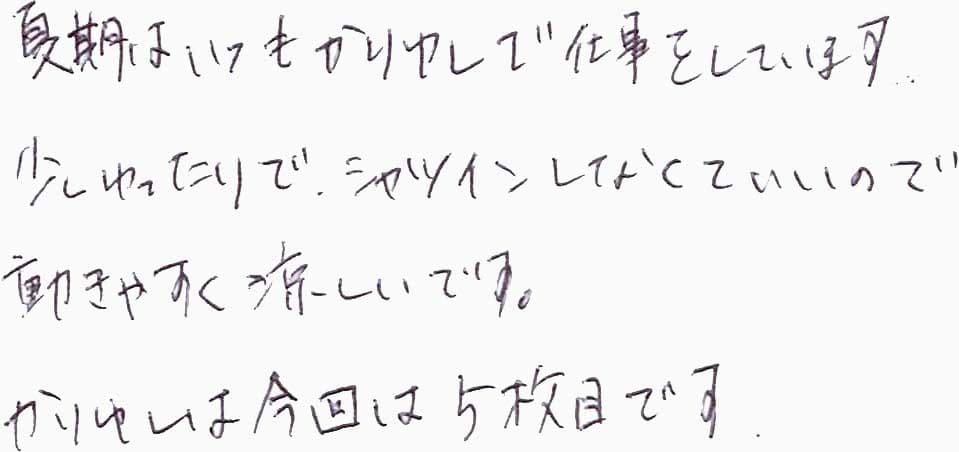 夏期はいつもかりゆしで仕事をしています.
少しゆったりで、シャツインしなくていいので
動きやすく涼しいです。
かりゆしは今回は5枚目です.